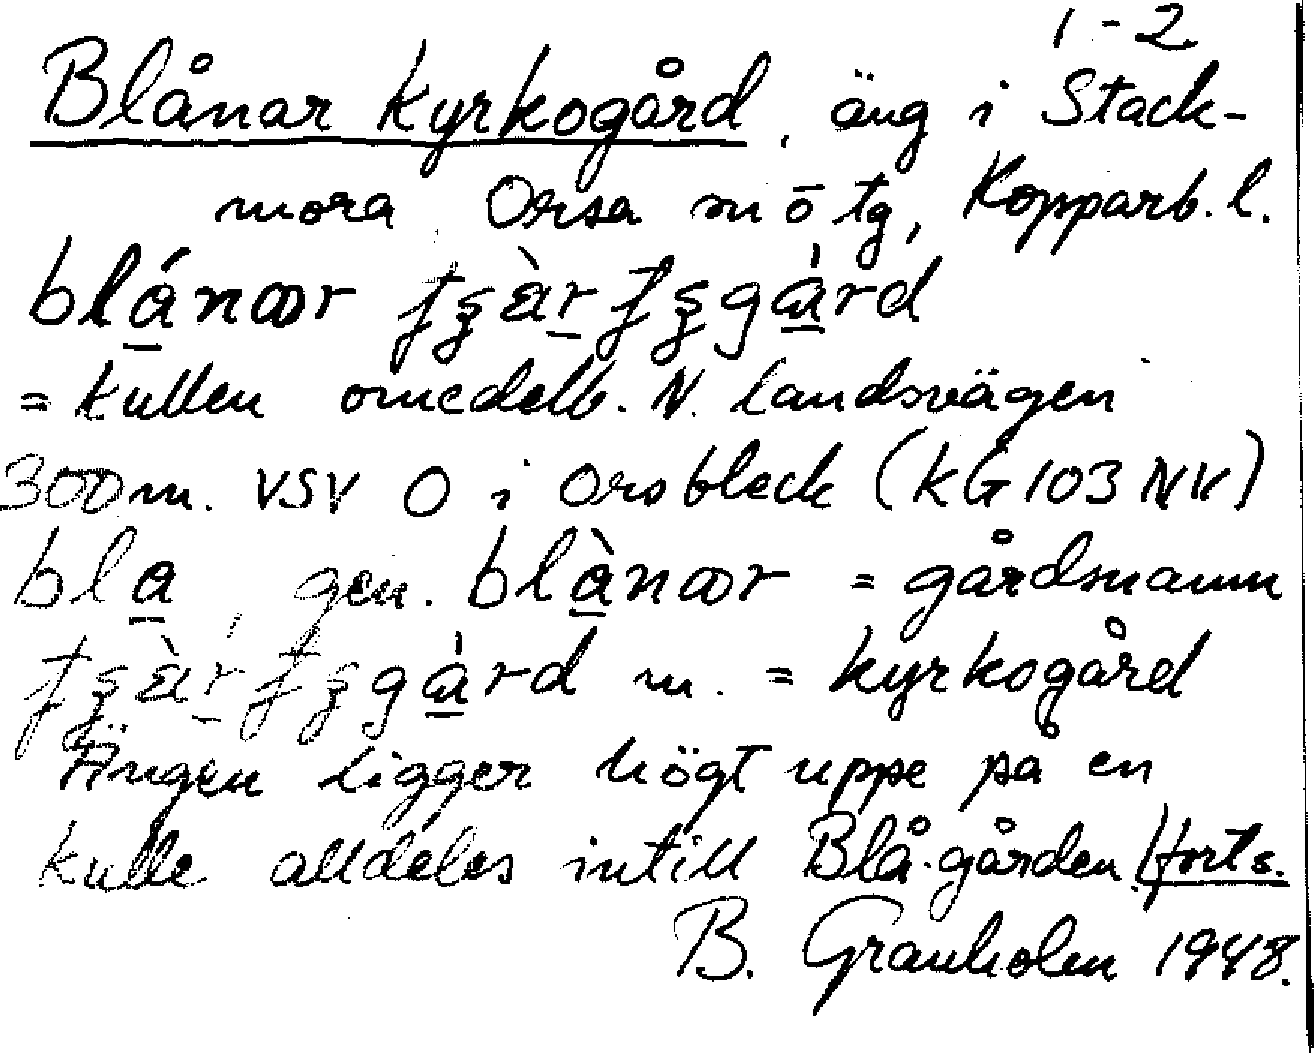 1-2
Blånar kyrkogård, äng i Stack-
mora Orsa sn ö tg, Kopparb. l.
blánær
= kullen omedelb. N. landsvägen
300 m. VSV O i Orsbleck (KG 103 NV)
bla, gen. blànær = gårdsnamn
m. = kyrkogård
Ängen ligger högt uppe på en
kulle alldeles intill Blå-gården. /forts.
B. Granholm 1948.